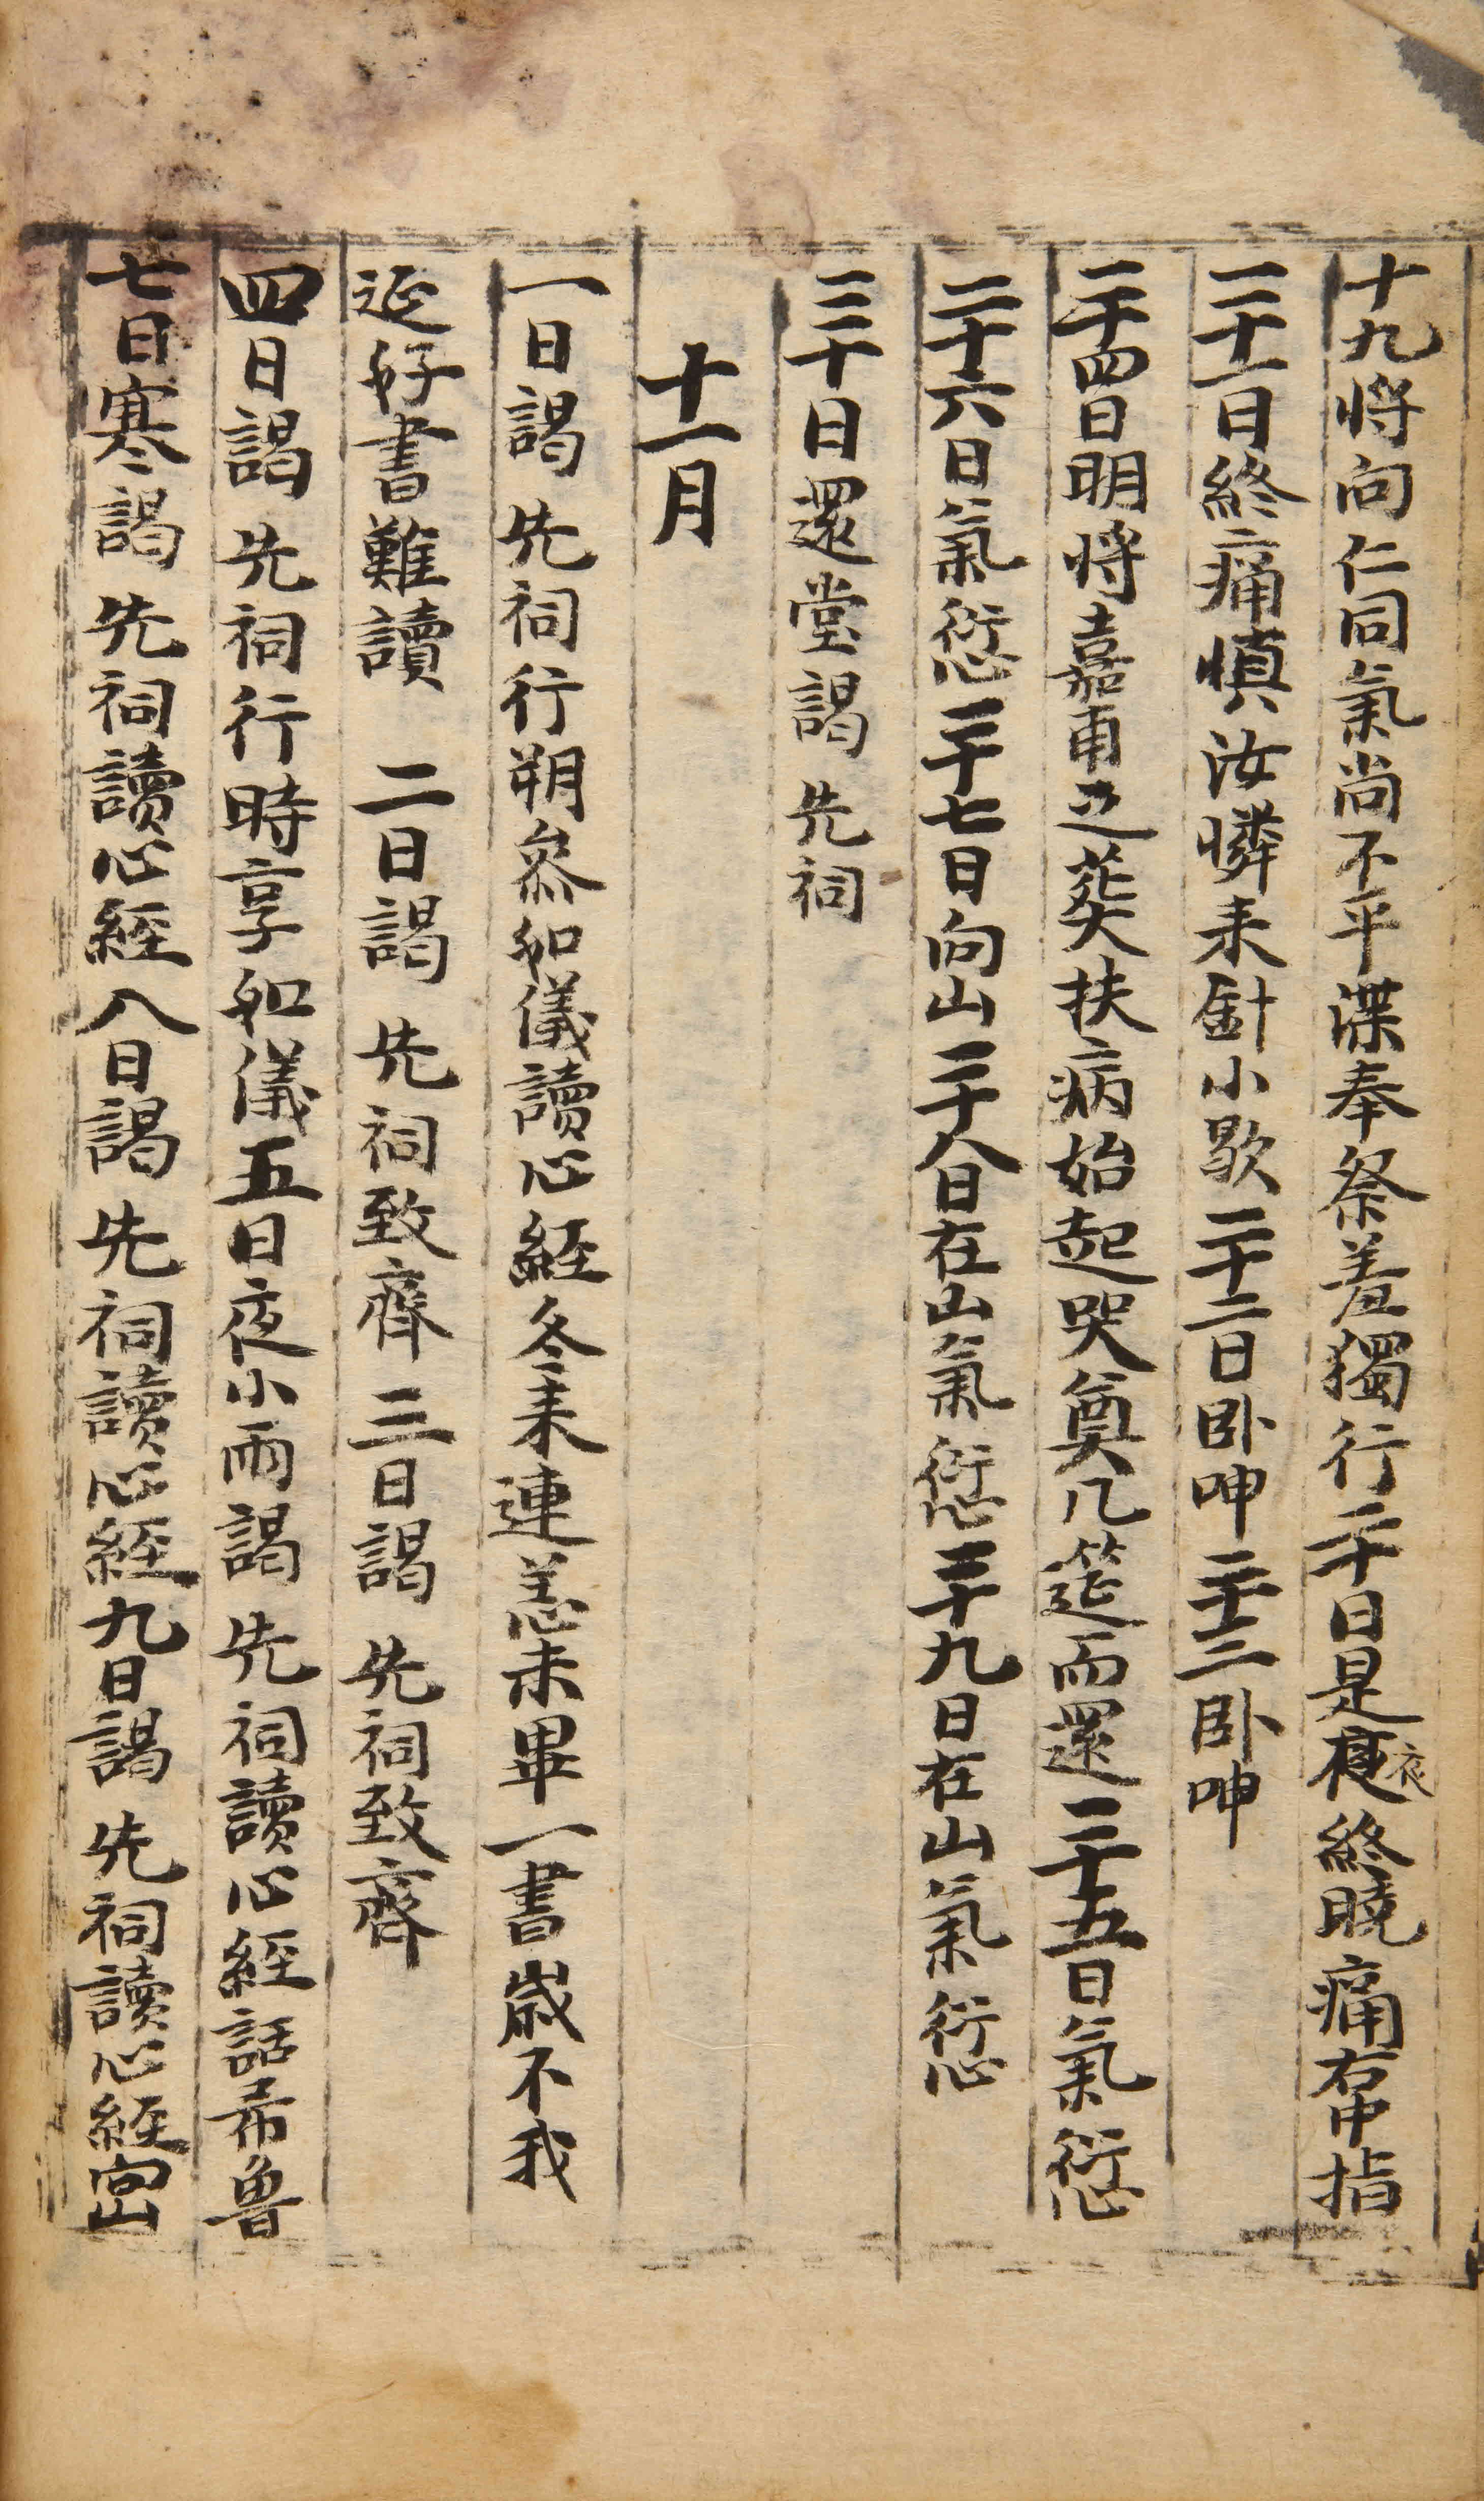 十九將向仁同氣尚不平渫奉祭羞獨行二十日是夜終曉痛右中指
二十一日終痛愼汝憐来針小歇二十二日卧呻二十三卧呻
二十四日明将嘉甫之葬扶病始起哭奠几筵而還二十五日氣愆
二十六日氣愆二十七日向山二十八日在山氣愆二十九日在山氣愆
三十日還堂謁先祠
十一月
一日謁先祠行朔叅如儀讀心經冬来連恙未畢一書歲不我
延好書難讀二日謁先祠致齊三日謁先祠致齊
四日謁先祠行時享如儀五日夜小雨謁先祠讀心經話希魯
七日寒謁先祠讀心經八日謁先祠讀心經九日謁先祠讀心經宿山